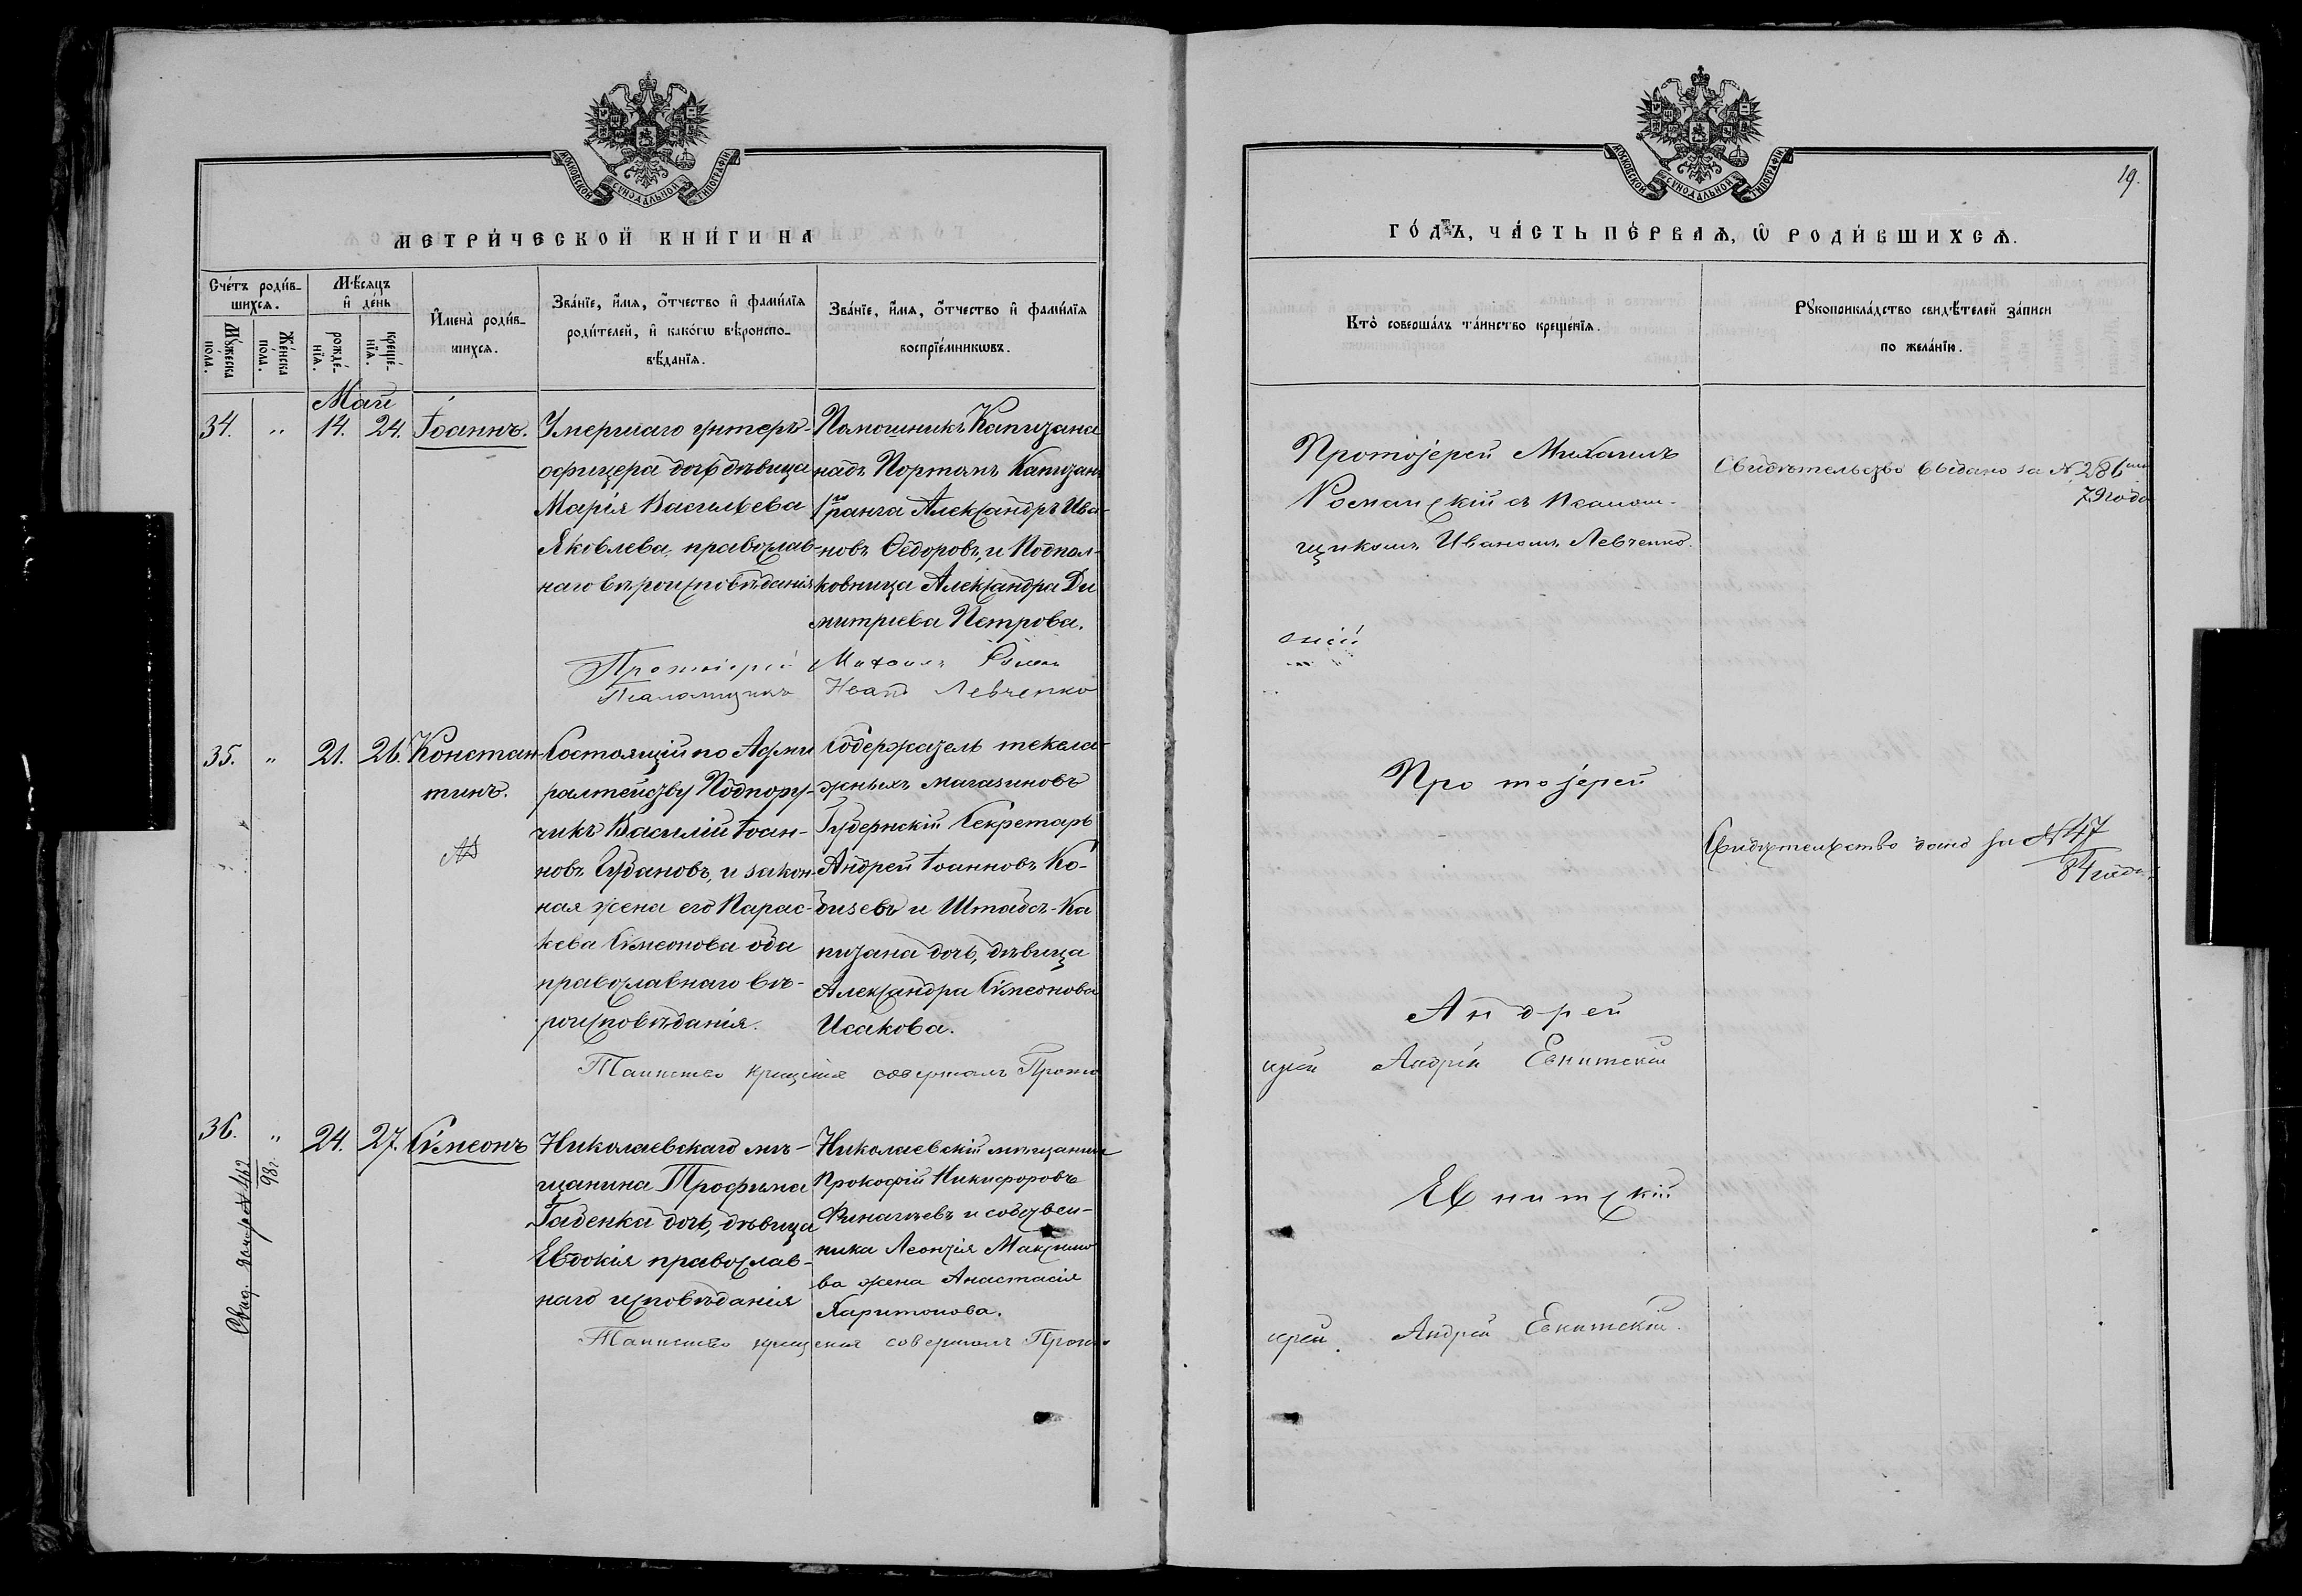 МОСКОВСКОЙ СѴНОДАЛЬНОЙ ТИПОГРАФІИ
МЕТРИ́ЧЕСКОЙ КНИ́ГИ НА
Сче́тъ роди́в-
шихсѧ.
Мꙋ́жеска
по́ла.
Же́нска
пола.
Мѣ́сѧцъ
и҆ де́нь
рожде́-
нїѧ.
креще́-
нїѧ.
И҆мена̀ роди́в-
шихсѧ.
Зва́нїе, и҆́мѧ, ѻ҆́тчество и҆ фами́лїѧ
роди́телей, и҆ како́гѡ вѣроиспо-
вѣ́данїѧ.
Зва́нїе, и҆́мѧ, ѻ҆́тчество и҆ фами́лїѧ
воспрїе́мникѡвъ.
Май
34. " 14. 24. Іоаннъ.
Умершаго унтеръ-
офицера дочь девица
Марія Васильева
Яковлева, православ-
наго вѣроисповѣданія
Помошникъ Капитана
надъ Портомъ Капитанъ
1го ранга Александръ Ива-
новъ Ѳедоровъ, и Подпол-
ковница Александра Ди
митриева Петрова.
Протоіерей Михаилъ Роман
Псаломщикъ Иванъ Левченко
35. " 21. 26. Констан-
тинъ.
Состоящій по Адми
ралтейству Подпору-
чикъ Василій Іоан-
новъ Чудановъ, и закон-
ная жена его Парас-
кева Сѵмеонова оба
православнаго вѣ-
роисповѣданія.
Содержатель текела-
жныхъ магазиновъ
Губернскій Секретарь
Андрей Іоанновъ Ко-
бизевъ и Штабсъ-Ка
питана дочь, дѣвица
Александра Сѵмеонова
Исакова.
Таинство крещенія совершалъ Прото
36. " 24. 27. Сѵмеонъ
Свид. выдано № 462
98 г.
Николаевскаго мѣ-
щанина Трофима
Гаденка дочь, дѣвица
Евдокія православ-
наго исповѣданія
Николаевскій мѣщанинъ
Прокофій Никифоровъ
и собствен-
ника Леонтія Максимо
ва жена Анастасія
Харитонова.
Таинство крещенія совершалъ Прото
МОСКОВСКОЙ СѴНОДАЛЬНОЙ ТИПОГРАФІИ
19.
ГО́ДЪ, ЧА́СТЬ ПЕ́РВАѦ, Ѡ҆ РОДИ́ВШИХСѦ.
Кто̀ соверша́лъ та́инство креще́нїѧ.
Рꙋкоприкла́дство свидѣ́телей за́писи
по жела́нїю.
Протоіерей Михаилъ
Романскій съ Псалом-
щикомъ Иваномъ Левченко.
Свидѣтельство выдано за № 286
79 года
скій
Протоіерей
Свидѣтельство дано за № 47
84 года.
Андрей
іерей Андрей Евнитскій
Евнитскій
іерей. Андрей Евнитскій.